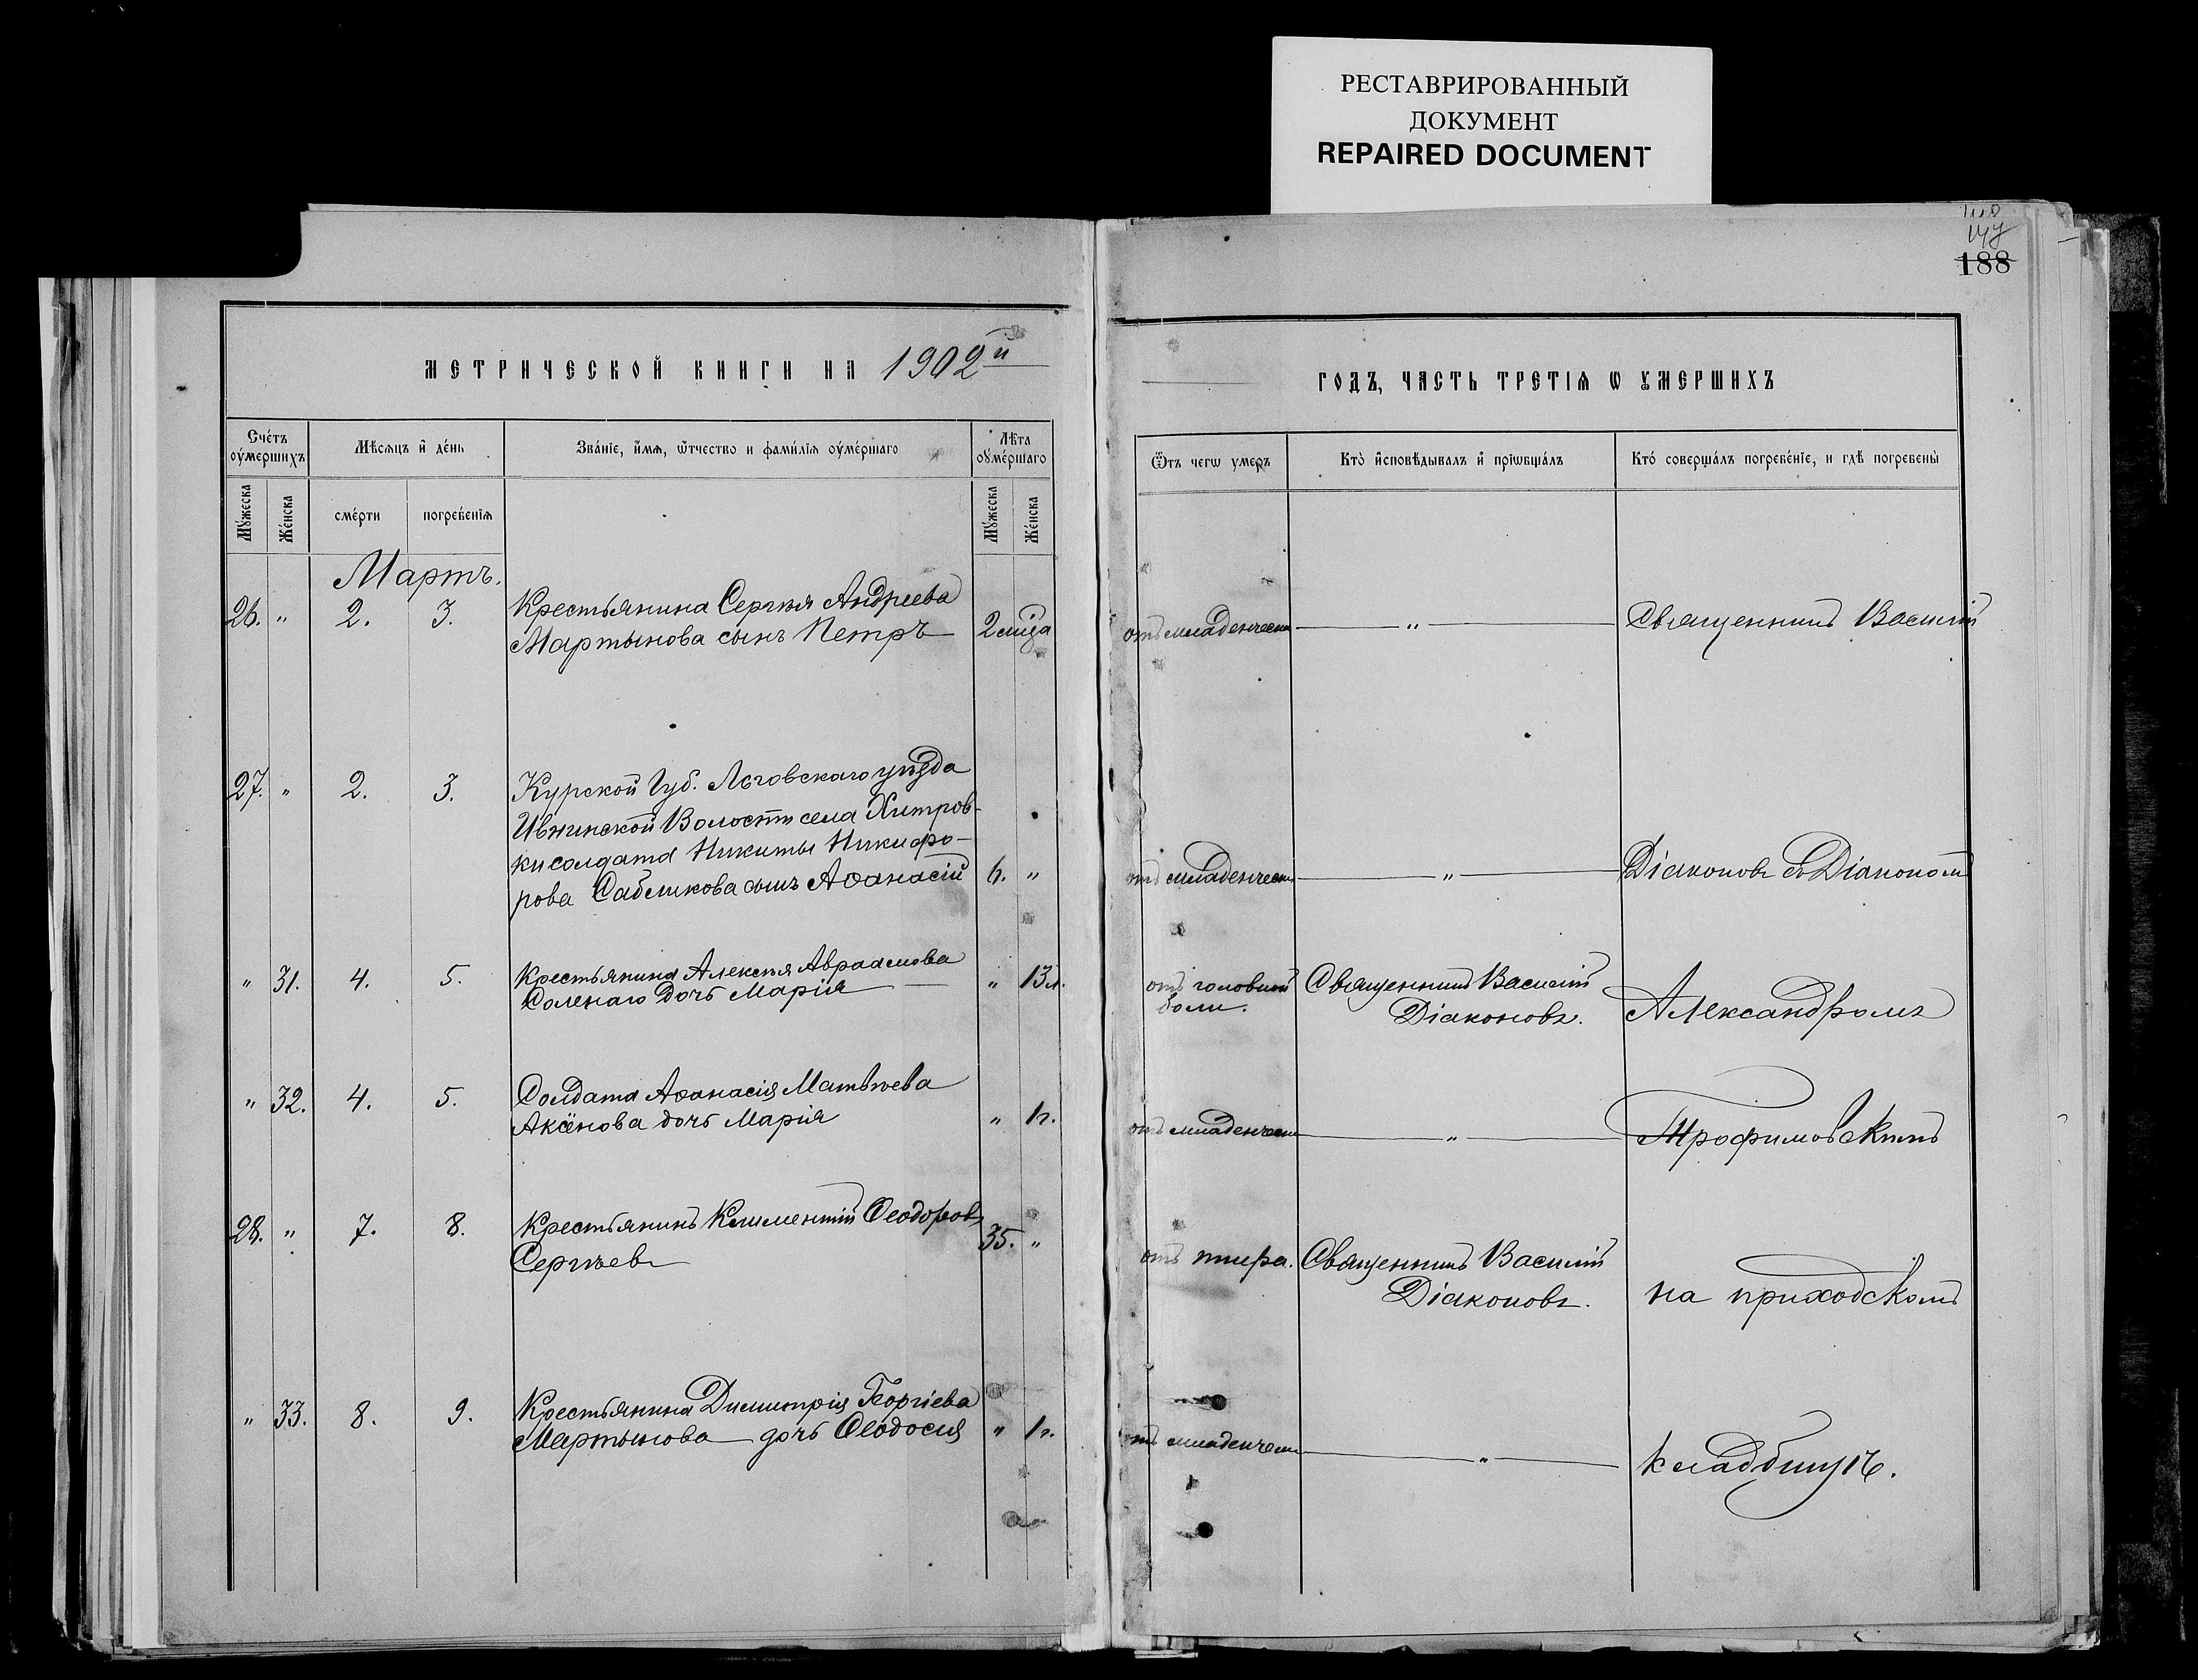 РЕСТАВРИРОВАННЫЙ
ДОКУМЕНТ
REPAIRED DOCUMENT
188
МЕТРИЧЕСКОЙ КНИГИ НА 1902й
ГОДЪ, ЧАСТЬ ТРЕТІѦ Ѡ ѸМЕРШИХЪ
Счетъ оумершихъ
Мѣсяцъ и день
Званіе, имя, ѿчество и фамилія оумершаго
Лѣта оумершаго
Ѿ чегѡ умеръ
Кто исповѣдывалъ и пріѡбщалъ
Кто совершалъ погребеніе, и гдѣ погребены
Мужеска
Женска
смерти
погребенія
Мужеска
Женска
Мартъ.
26. " 2. 3. Крестьянина Сергѣя Андреева
Мартынова сынъ Петръ 2 мца отъ младенческ " Священникъ Василій
27. " 2. 3. Курской Губ. Льговскаго уѣзда
Ивнинской Волости села Хитров-
ки солдата Никиты Никифо-
рова Сабликова сынъ Аѳанасій " отъ младенческ " Діаконовъ съ Діакономъ
" 31. 4. 5. Крестьянина Алексѣя Авраамова
Соленаго дочь Марія " 13л. отъ головной боли. Священникъ Василій
Діаконовъ. Александромъ
" 32. 4. 5. Солдата Аѳанасія Матвѣева
Аксёнова дочь Марія " 1г. отъ младенческ " Трофимовскимъ
28. " 7. 8. Крестьянинъ Климентій Ѳеодоровъ
Сергѣевъ 35. " отъ тифа. Священникъ Василій
Діаконовъ. на приходскомъ
" 33. 8. 9. Крестьянина Димитрія Георгіева
Мартынова дочь Ѳеодосія " 1г. отъ младенческ " кладбищѣ.